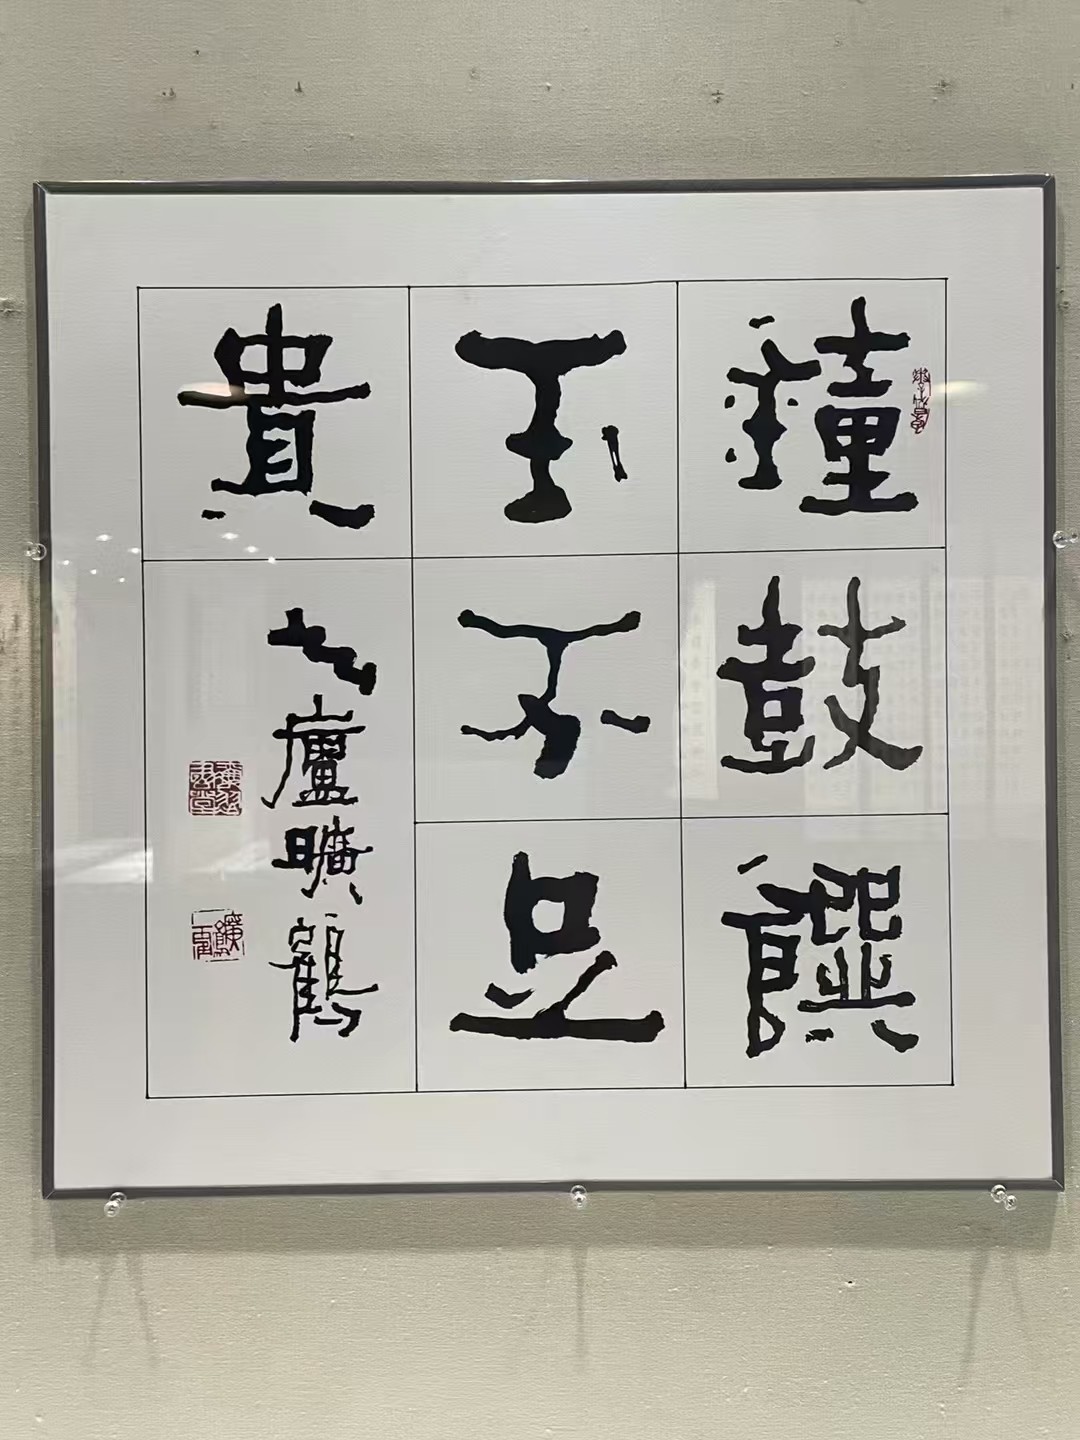 鐘鼓饌
玉不足
貴
之廬曠鶴